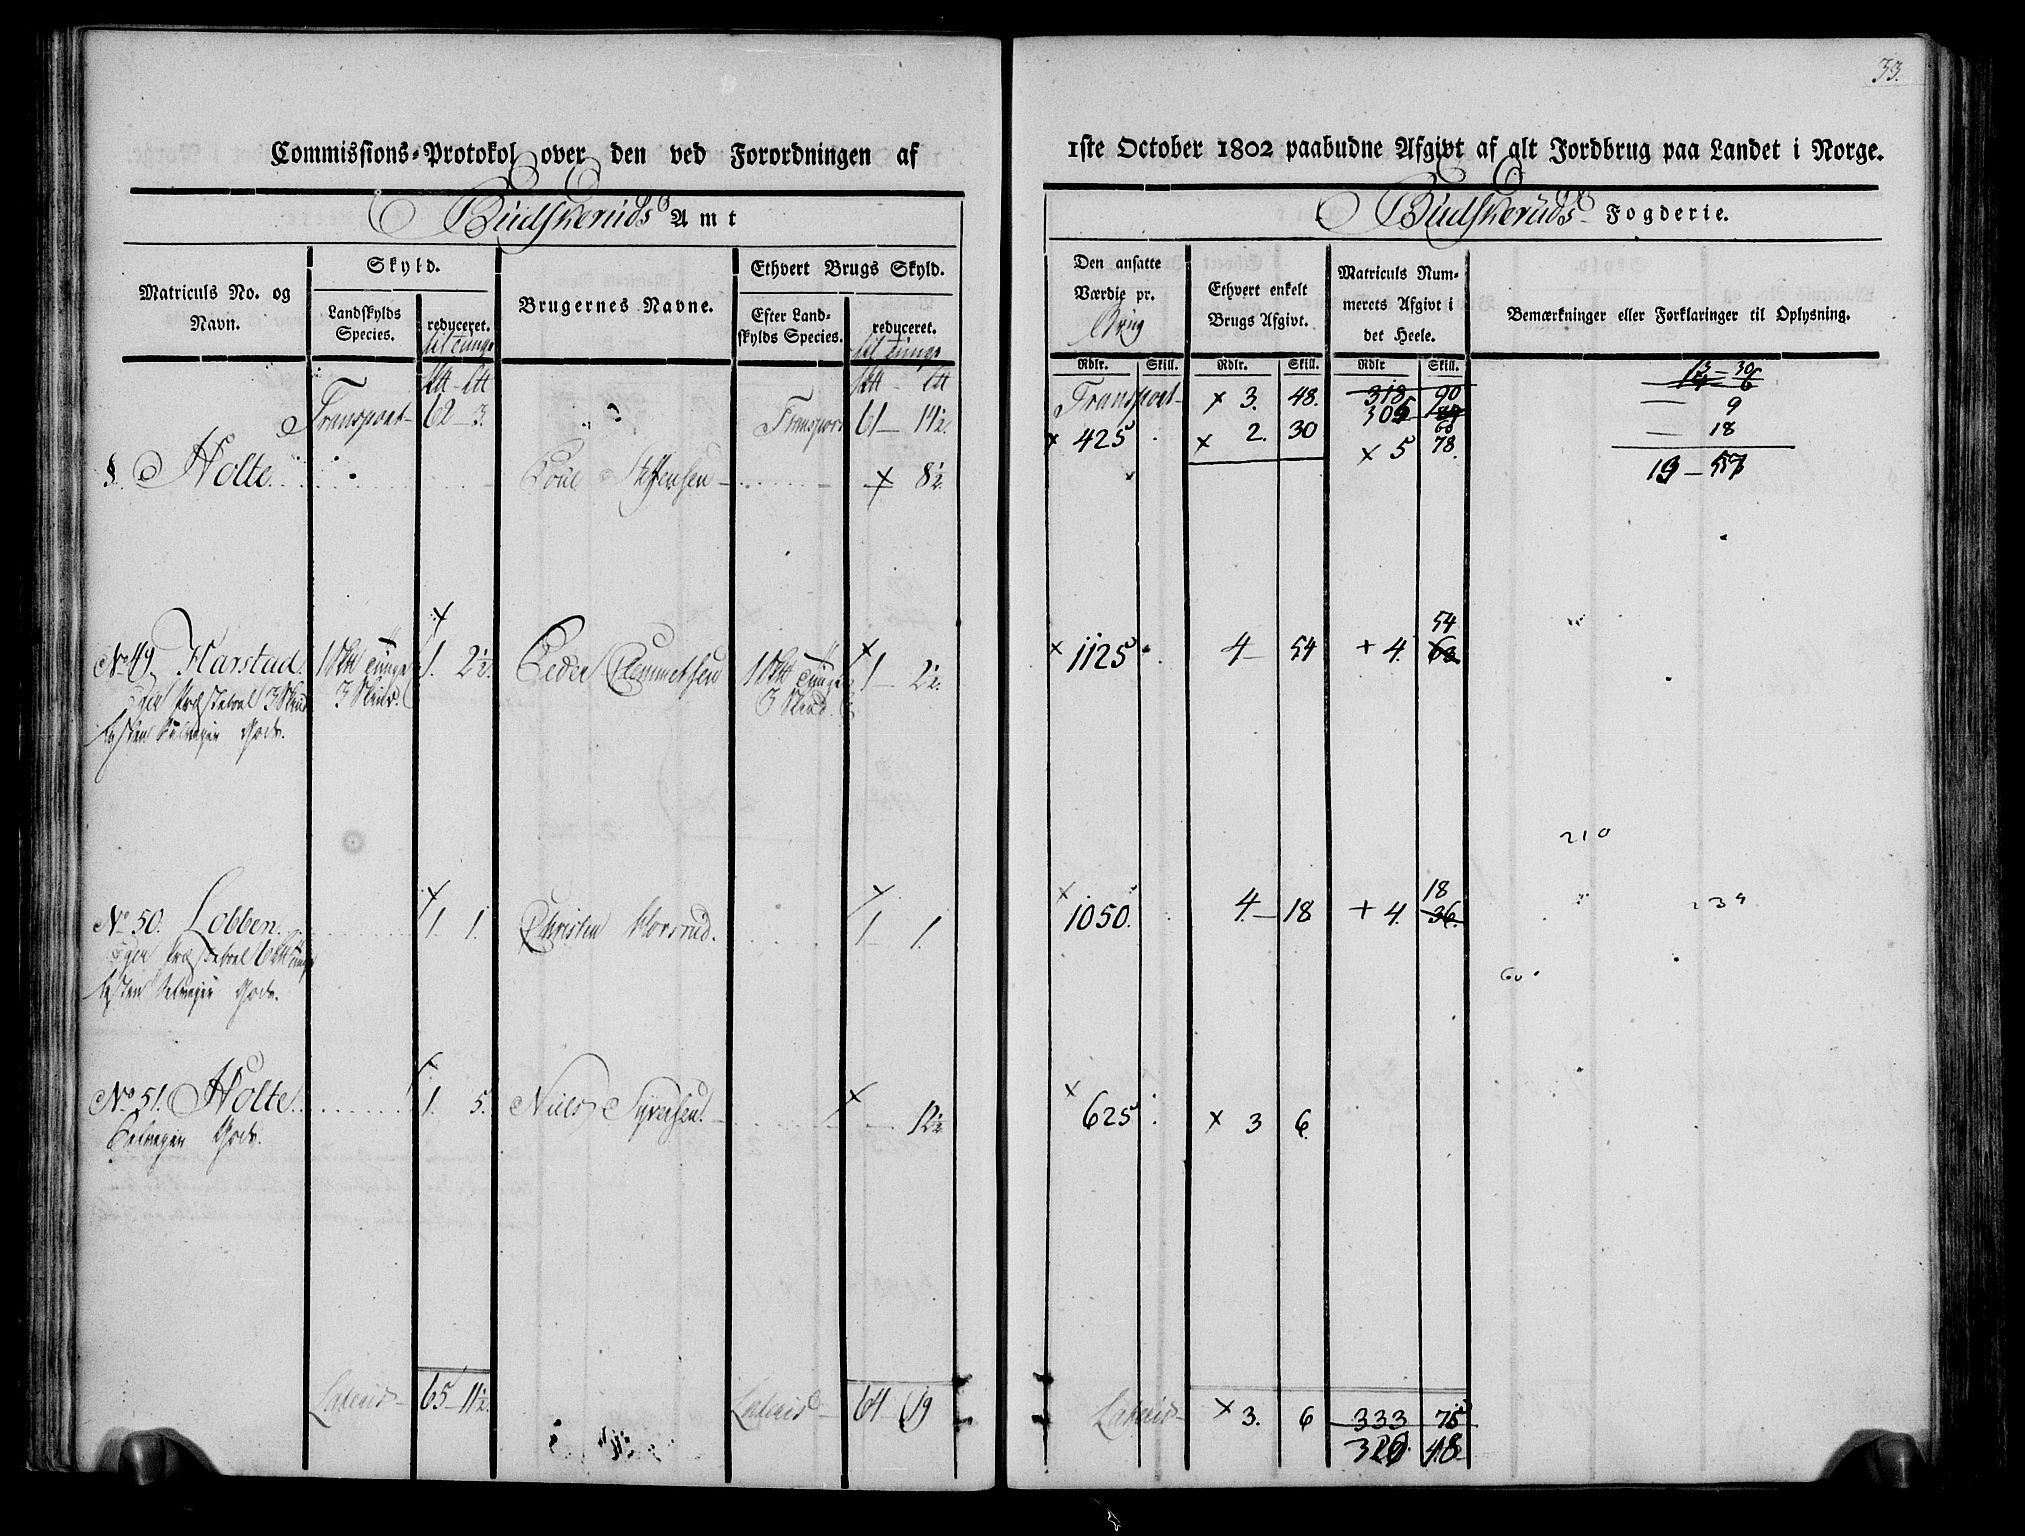 33.
Commissions-Protokol over den ved Forordningen af
1ste October 1802 paabudne Afgivt af alt Jordbrug paa Landet i Norge.
Budskeruds Amt
Budskeruds Fogderie.
Matriculs No. og Navn.
Skyld.
Landskylds Species.
reduceret. til Tunge
Brugernes Navne.
Ethvert Brugs Skyld.
Efter Landskylds Species.
reduceret. til Tunge
Den ansatte Værdie pr. Brug
Ethvert enkelt Brugs Afgivt.
Matriculs Nummerets Afgivt i det Heele.
Bemærkninger eller Forklaringer til Oplysning.
Rdlr. Skill. Rdlr. Skill. Rdlr Skill.
Transport 62 - 3. Transport 61 - 14½.
Transport × 3. 48. 318. 90
305
13 - 30
9
18
19 - 57
§. Holte Poul Steffensen × 8½.
× 425 × 2. 30 × 5 78.
No 49. Harstad 1 Tunge 3 1. 2½. Peder Clemmetsen 1 Tunge 3 1 - 2½.
Eger Præstebol 3
Resten Selveyer Gods.
× 1125 4 - 54 + 4. 54
210
No 50. Lobben 1. 1. Christen Horsrud. 1 - 1.
Eger Præstebol 6
Resten Selveyer Gods.
× 1050. 4. - 18 + 4. 18 36.
60
No 51. Holte 1. 5. Niels Syversen. × 12½
Selveyer Gods.
× 625 × 3 6.
Lateris 65 - 11½. Lateris 64 - 19
Lateris × 3. 6 333 75
48